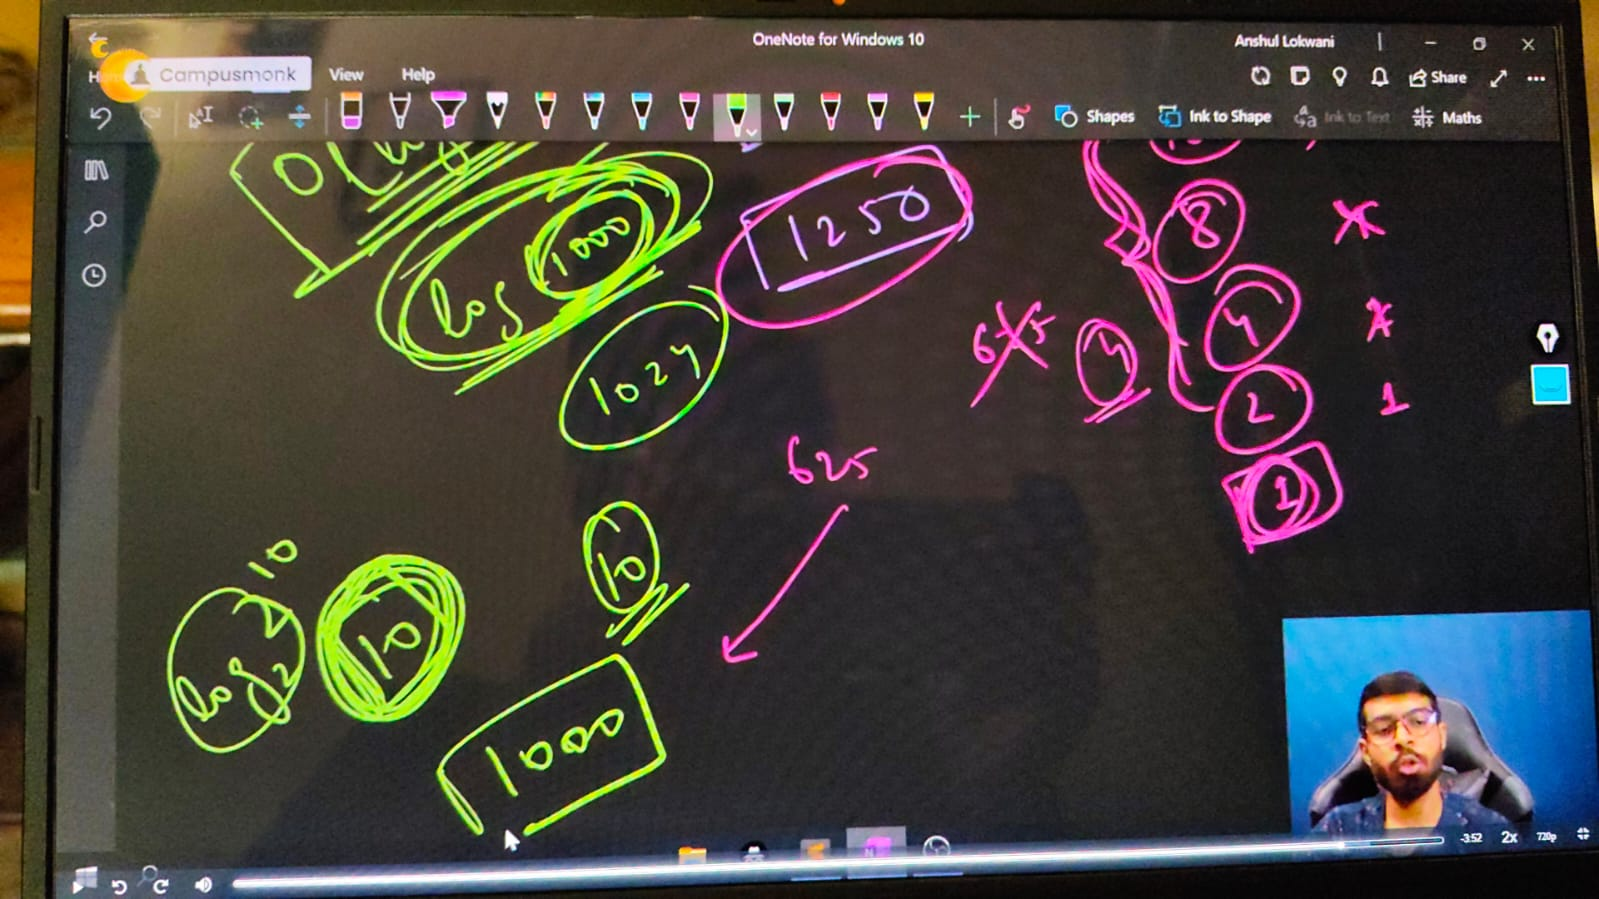 OneNote for Windows 10
Anshul Lokwani
Campusmonk
View Help
Share
Shapes
Ink to Shape
Ink to Text
Maths
log 1000
1250
8
1024
625
4
4
2
1
1
625
log₂ 2 10
10
10
1000
-3:52 2x 720p